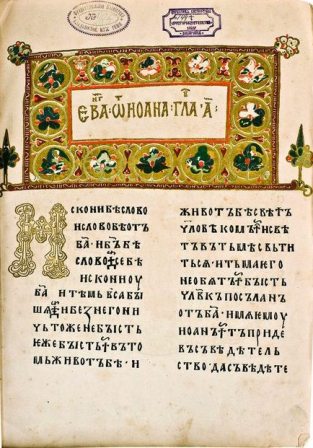 ЕВА · ѾИОАНА · ГЛА · А҃ ·
ИСКОНИБѢСЛОВО
ИСЛОВОБѢОТЪ
БА҃ · ИБЪ҃БѢ
СЛОВО · СЕБѢ
ИСКОНИОУ
БА҃ ИТѢМЬВЬСАБЫ
ШѦ · ИБЕЗНЕГОНИ
ЧЬТОЖЕНЕБЫСТЬ
ѤЖЕБЫСТЬ · ВЪТО
МЬЖИВОТЪБѢ · И
ЖИВОТЪБѢСВѢТЪ
ЧЛОВѢКОМЪ · ИСВѢ
ТЪВЪТЬМѢСВЬТИ
ТЬСѦ · ИТЬМАѤГО
НЕОБѦТЪ · БЫСТЬ
ЧЛ҃ВКЪПОСЪЛАНЪ
ОТЪБА҃ · ИМѦѤМОУ
ИОАНЪ · ТЪПРИДЕ
ВЪСЪВѢДѢТЕЛЬ
СТВО · ДАСЪВѢДѢТЕ